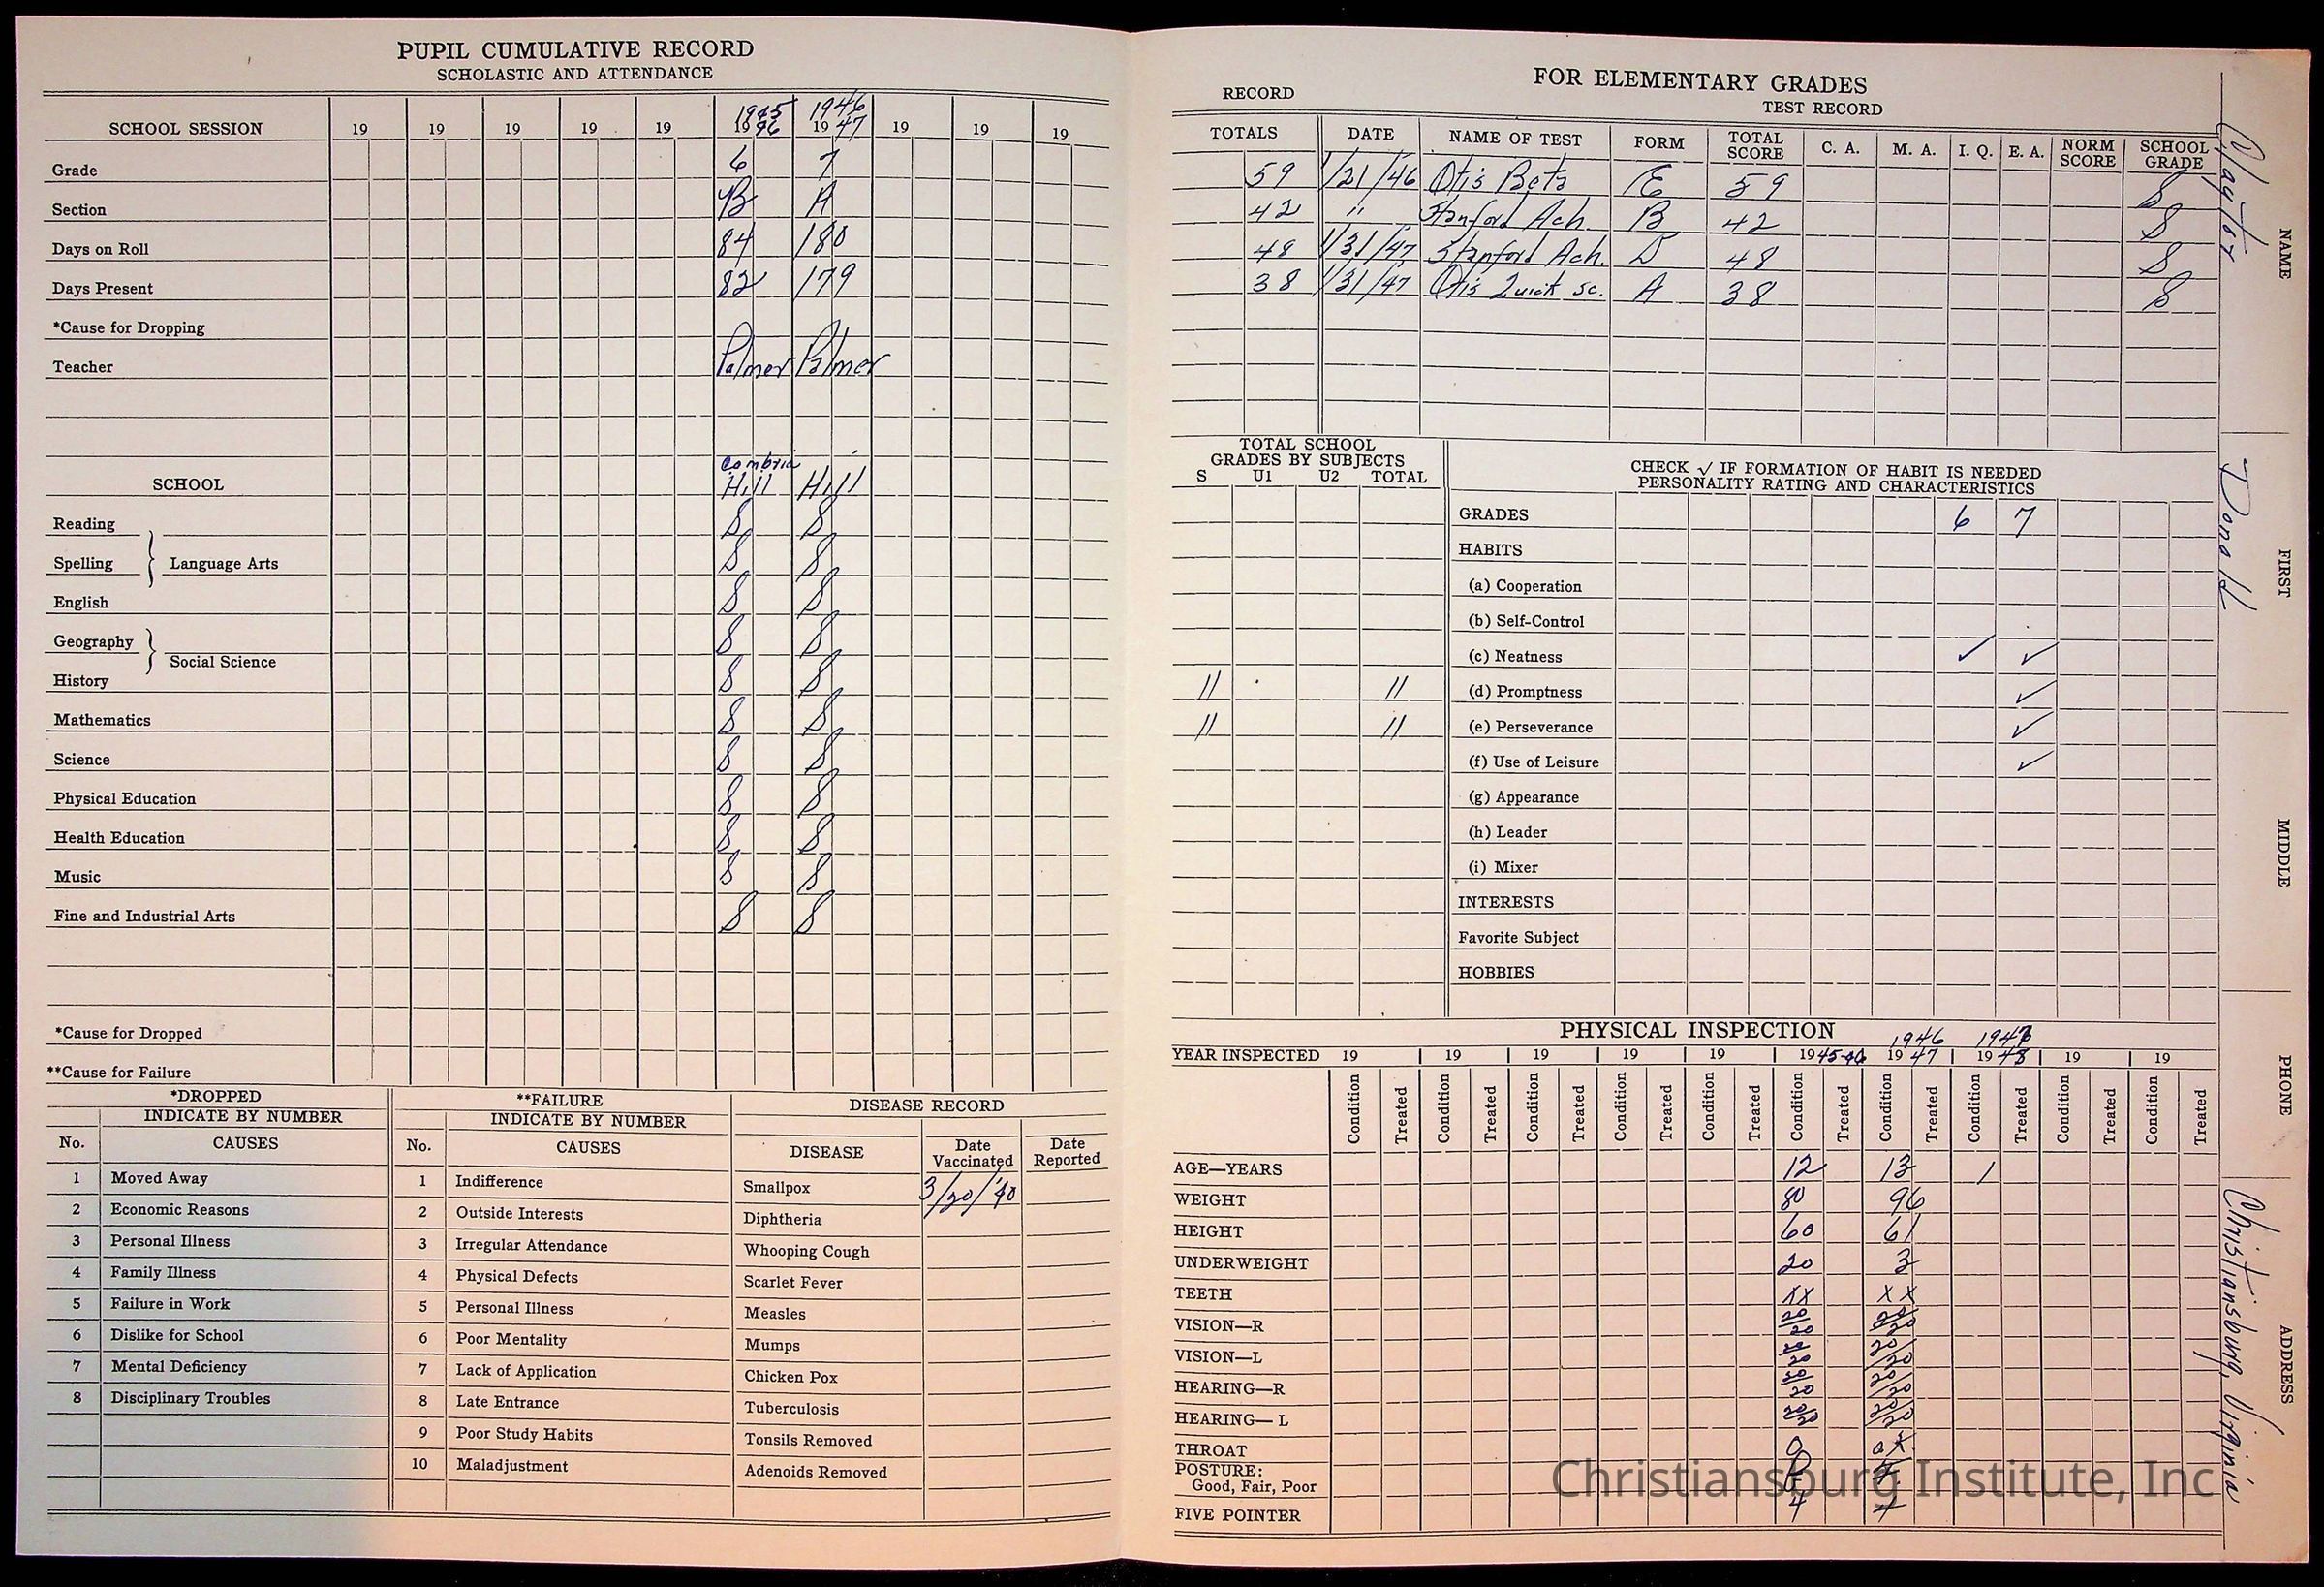 PUPIL CUMULATIVE RECORD
SCHOLASTIC AND ATTENDANCE
SCHOOL SESSION 19 19 19 19 19 1945 1946 46 1946 1947 19 19 19
Grade 6 7
Section B A
Days on Roll 84 180
Days Present 82 179
*Cause for Dropping
Teacher Palmer Palmer
Cambria
SCHOOL Hill Hill
Reading S S
Spelling Language Arts S S
English S S
Geography S S
Social Science
History S S
Mathematics S S
Science S S
Physical Education S S
Health Education S S
Music S S
Fine and Industrial Arts S S
*Cause for Dropped
**Cause for Failure
*DROPPED
INDICATE BY NUMBER
No. CAUSES
1 Moved Away
2 Economic Reasons
3 Personal Illness
4 Family Illness
5 Failure in Work
6 Dislike for School
7 Mental Deficiency
8 Disciplinary Troubles
**FAILURE
INDICATE BY NUMBER
No. CAUSES
1 Indifference
2 Outside Interests
3 Irregular Attendance
4 Physical Defects
5 Personal Illness
6 Poor Mentality
7 Lack of Application
8 Late Entrance
9 Poor Study Habits
10 Maladjustment
DISEASE RECORD
DISEASE Date Vaccinated Date Reported
Smallpox 3/20/'40
Diphtheria
Whooping Cough
Scarlet Fever
Measles
Mumps
Chicken Pox
Tuberculosis
Tonsils Removed
Adenoids Removed
FOR ELEMENTARY GRADES
RECORD
TEST RECORD
TOTALS DATE NAME OF TEST FORM TOTAL SCORE C. A. M. A. I. Q. E. A. NORM SCORE SCHOOL GRADE
59 1/21/46 Otis Beta E 59 S
42 " Stanford Ach. B 42 S
48 1/31/47 Stanford Ach. D 48 S
38 1/31/47 Otis Quick sc. A 38 S
TOTAL SCHOOL
GRADES BY SUBJECTS
S U1 U2 TOTAL
11 11
11 11
CHECK ✓ IF FORMATION OF HABIT IS NEEDED
PERSONALITY RATING AND CHARACTERISTICS
GRADES 6 7
HABITS
(a) Cooperation
(b) Self-Control
(c) Neatness ✓ ✓
(d) Promptness ✓
(e) Perseverance ✓
(f) Use of Leisure ✓
(g) Appearance
(h) Leader
(i) Mixer
INTERESTS
Favorite Subject
HOBBIES
PHYSICAL INSPECTION 1946 1947
YEAR INSPECTED 19 19 19 19 19 1945-46 1947 1948 19 19
Condition Treated Condition Treated Condition Treated Condition Treated Condition Treated Condition Treated Condition Treated Condition Treated Condition Treated Condition Treated
AGE—YEARS 12 13 1
WEIGHT 80 96
HEIGHT 60 61
UNDERWEIGHT 20 3
TEETH XX XX
VISION—R 20/20 20/20
VISION—L 20/20 20/20
HEARING—R 20/20 20/20
HEARING—L 20/20 20/20
THROAT
POSTURE:
Good, Fair, Poor
FIVE POINTER 4
NAME Claytor
FIRST Donald
MIDDLE
PHONE
ADDRESS Christiansburg, Virginia
Christiansburg Institute, Inc